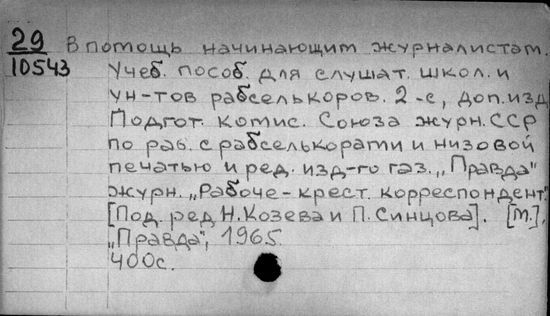 29 В помощь начинающим журналистам.
10543 Учеб. пособ. для слушат. школ. и
ун-тов рабселькоров. 2-е, доп. изд
Подгот. комис. Союза журн. ССР
по раб. с рабселькорами и низовой
печатью и ред. изд-го газ. „Правда"
журн. „Рабоче-крест. корреспондент"
[Под. ред Н. Козева и П. Синцова]. [М.],
„Правда", 1965.
400с.